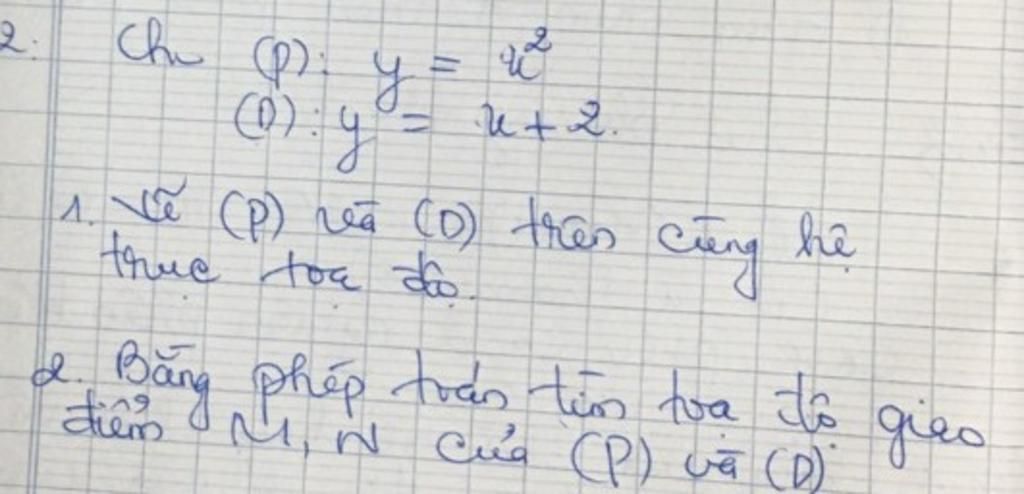 2. Cho (P): y = x²
(D): y = x + 2.
1. Vẽ (P) và (D) trên cùng hệ
trục toạ độ.
2. Bằng phép toán tìm toạ độ giao
điểm M, N của (P) và (D)